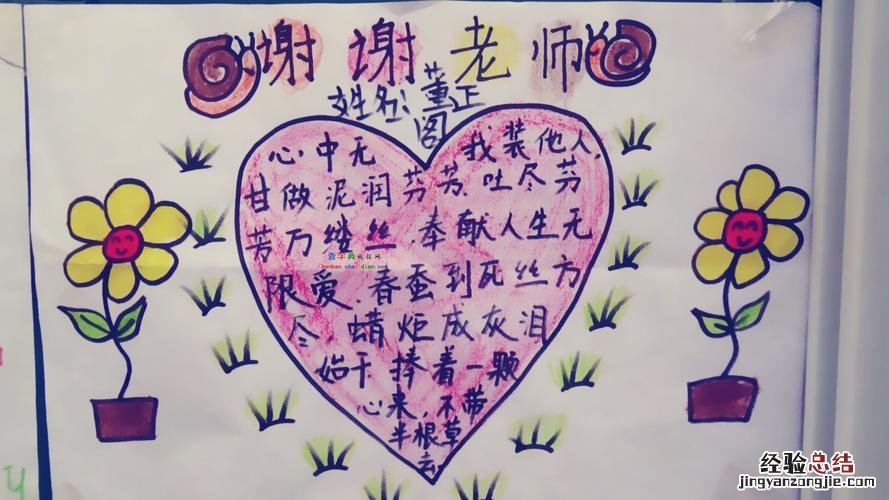 谢谢老师
姓名:董正阁
心中无 我装他人,
甘做泥润芬芳.吐尽芬
芳万缕丝.奉献人生无
查字典手抄报网
hanbao.chazidian.com
限爱.春蚕到死丝方
尽.蜡炬成灰泪
始干捧着一颗
心来,不带
半根草
去
经验总结
jingyanzongjie.com